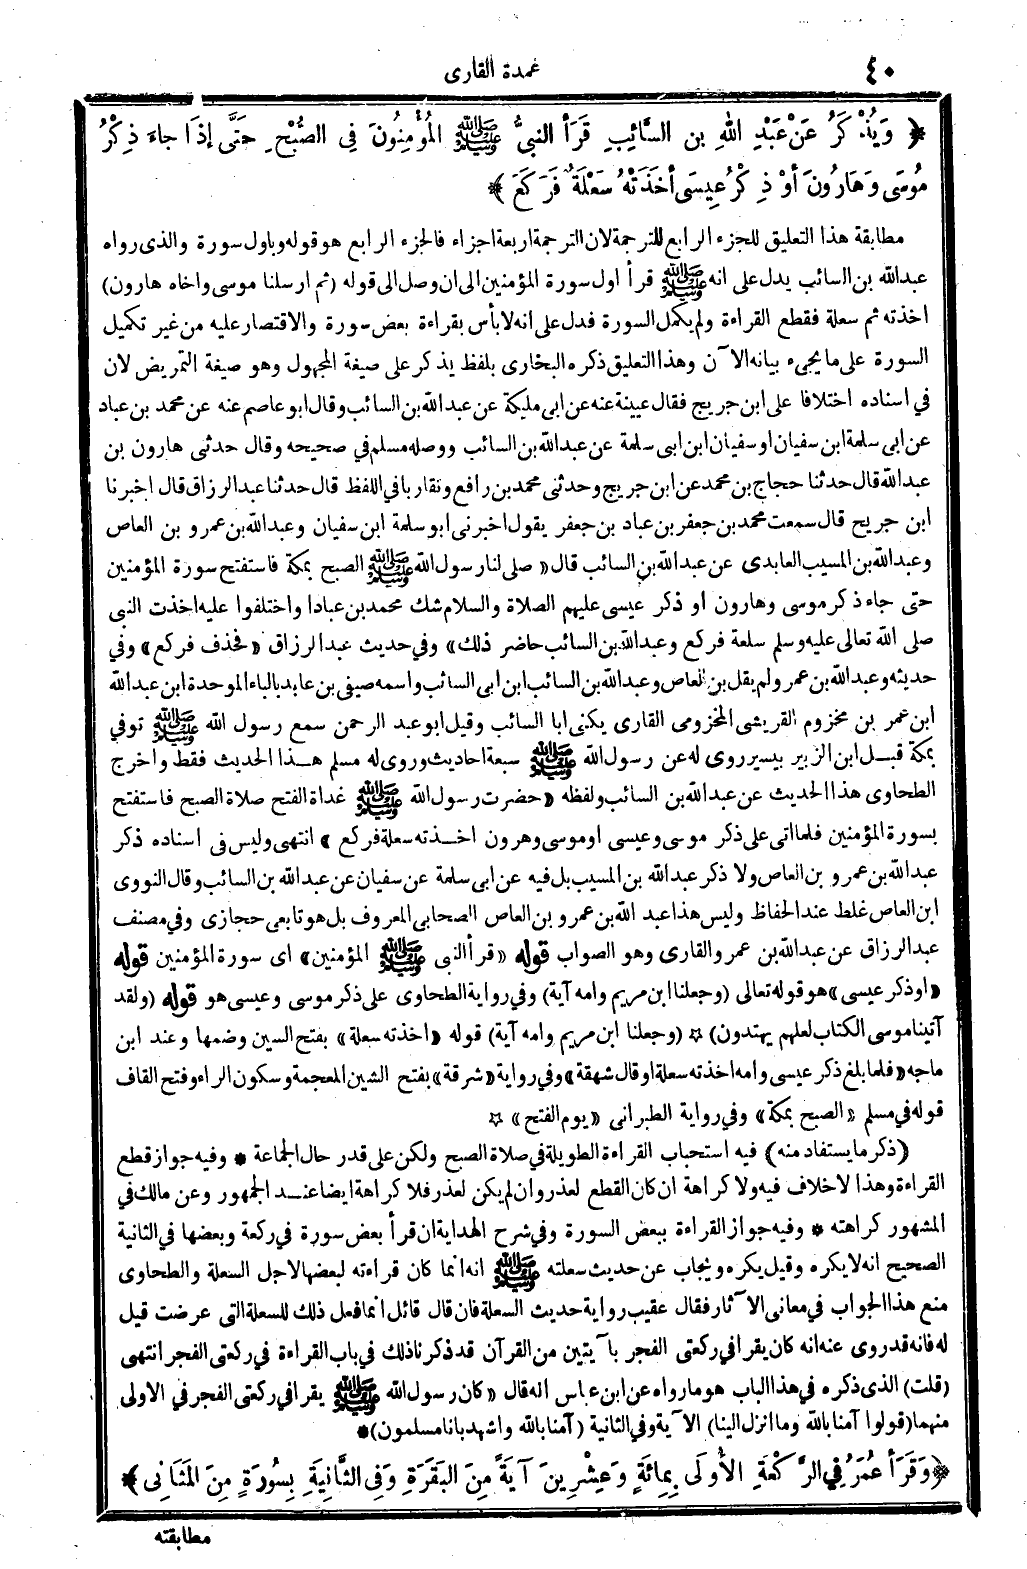 ٤٠
عمدة القارى
﴿ وَيُذْكَرُ عَنْ عَبْدِ اللهِ بنِ السَّائِبِ قَرَأَ النبيُّ ﷺ المُؤْمِنُونَ فِى الصُّبْحِ حَتَّى إِذَا جاءَ ذِكْرُ
مُوسَى وَهَارُونَ أوْ ذِكْرُ عِيسَى أخَذَتْهُ سَعْلَةٌ فَرَكَعَ ﴾
مطابقة هذا التعليق للجزء الرابع للترجمة لان الترجمة اربعة اجزاء فالجزء الرابع هو قوله وباول سورة والذى رواه
عبدالله بن السائب يدل على انه ﷺ قرأ اول سورة المؤمنين الى ان وصل الى قوله (ثم ارسلنا موسى واخاه هارون)
اخذته ثم سعلة فقطع القراءة ولم يكمل السورة فدل على انه لا بأس بقراءة بعض سورة والاقتصار عليه من غير تكميل
السورة على ما يجىء بيانه الآن وهذا التعليق ذكره البخارى بلفظ يذكر على صيغة المجهول وهو صيغة التمريض لان
في اسناده اختلافا على ابن جريج فقال عيينة عنه عن ابى مليكة عن عبد الله بن السائب وقال ابو عاصم عنه عن محمد بن عباد
عن ابى سلمة ابن سفيان او سفيان ابن ابى سلمة عن عبد الله بن السائب ووصله مسلم في صحيحه وقال حدثى هارون بن
عبد الله قال حدثنا حجاج بن محمد عن ابن جريج وحدثنى محمد بن رافع وتقاربا في اللفظ قال حدثنا عبد الرزاق قال اخبرنا
ابن جريج قال سمعت محمد بن جعفر بن عباد بن جعفر يقول اخبرنى ابو سلمة ابن سفيان وعبدالله بن عمرو بن العاص
وعبدالله بن المسيب العابدى عن عبد الله بن السائب قال «صلى لنا رسول الله ﷺ الصبح بمكة فاستفتح سورة المؤمنين
حتى جاء ذكر موسى وهارون او ذكر عيسى عليهم الصلاة والسلام شك محمد بن عباد او اختلفوا عليه اخذت النبى
صلى الله تعالى عليه وسلم سلعة فركع وعبد الله بن السائب حاضر ذلك» وفي حديث عبد الرزاق «فحذف فركع» وفي
حديثه وعبد الله بن عمر ولم يقل بن العاص وعبد الله بن السائب ابن ابى السائب واسمه صيفى بن عابد بالباء الموحدة ابن عبد الله
ابن عمر بن مخزوم القريشى المخزومى القارى يكنى ابا السائب وقيل ابو عبد الرحمن سمع رسول الله ﷺ توفي
بمكة قبل ابن الزبير بيسير روى له عن رسول الله ﷺ سبعة احاديث وروى له مسلم هذا الحديث فقط واخرج
الطحاوى هذا الحديث عن عبد الله بن السائب ولفظه «حضرت رسول الله ﷺ غداة الفتح صلاة الصبح فاستفتح
بسورة المؤمنين فلما اتى على ذكر موسى وعيسى او موسى وهرون اخذته سعلة فركع» انتهى وليس فى اسناده ذكر
عبد الله بن عمرو بن العاص ولا ذكر عبد الله بن المسيب بل فيه عن ابى سلمة عن سفيان عن عبد الله بن السائب وقال النووى
ابن العاص غلط عند الحفاظ وليس هذا عبد الله بن عمرو بن العاص الصحابى المعروف بل هو تابعى حجازى وفي مصنف
عبد الرزاق عن عبد الله بن عمرو القارى وهو الصواب قوله «قرأ النبى ﷺ المؤمنين» اى سورة المؤمنين قوله
«او ذكر عيسى» هو قوله تعالى (وجعلنا ابن مريم وامه آية) وفي رواية الطحاوى على ذكر موسى وعيسى هو قوله (ولقد
آتينا موسى الكتاب لعلهم يهتدون) ☆ (وجعلنا ابن مريم وامه آية) قوله «اخذته سعلة» بفتح السين وضمها وعند ابن
ماجه «فلما بلغ ذكر عيسى وامه اخذته سعلة او قال شهقة» وفي رواية «شرقة» بفتح الشين المعجمة وسكون الراء وفتح القاف
قوله في مسلم «الصبح بمكة» وفي رواية الطبرانى «يوم الفتح» ☆
(ذكر ما يستفاد منه) فيه استحباب القراءة الطويلة في صلاة الصبح ولكن على قدر حال الجماعة * وفيه جواز قطع
القراءة وهذا لا خلاف فيه ولا كراهة ان كان القطع لعذر وان لم يكن لعذر فلا كراهة ايضا عند الجمهور وعن مالك في
المشهور كراهته * وفيه جواز القراءة ببعض السورة وفي شرح الهداية ان قرأ بعض سورة في ركعة وبعضها في الثانية
الصحيح انه لا يكره وقيل يكره ويجاب عن حديث سعلته ﷺ انه انما كان قراءته لبعضها لاجل السعلة والطحاوى
منع هذا الجواب في معانى الآثار فقال عقيب رواية حديث السعلة فان قال قائل انما فعل ذلك للسعلة التى عرضت قيل
له فانه قد روى عنه انه كان يقرا في ركعتى الفجر بآيتين من القرآن قد ذكرنا ذلك في باب القراءة في ركعتى الفجر انتهى
(قلت) الذى ذكره في هذا الباب هو ما رواه عن ابن عباس انه قال «كان رسول الله ﷺ يقرا في ركعتى الفجر في الاولى
منهما (قولوا آمنا بالله وما انزل الينا) الآية وفي الثانية (آمنا بالله واشهد بانا مسلمون)*
﴿ وَقَرَأَ عُمَرُ فِي الرَّكْعَةِ الأُولَى بِمِائَةٍ وَعِشْرِينَ آيَةً مِنَ البَقَرَةِ وَفِى الثَّانِيَةِ بِسُورَةٍ مِنَ المَثَانِى ﴾
مطابقته